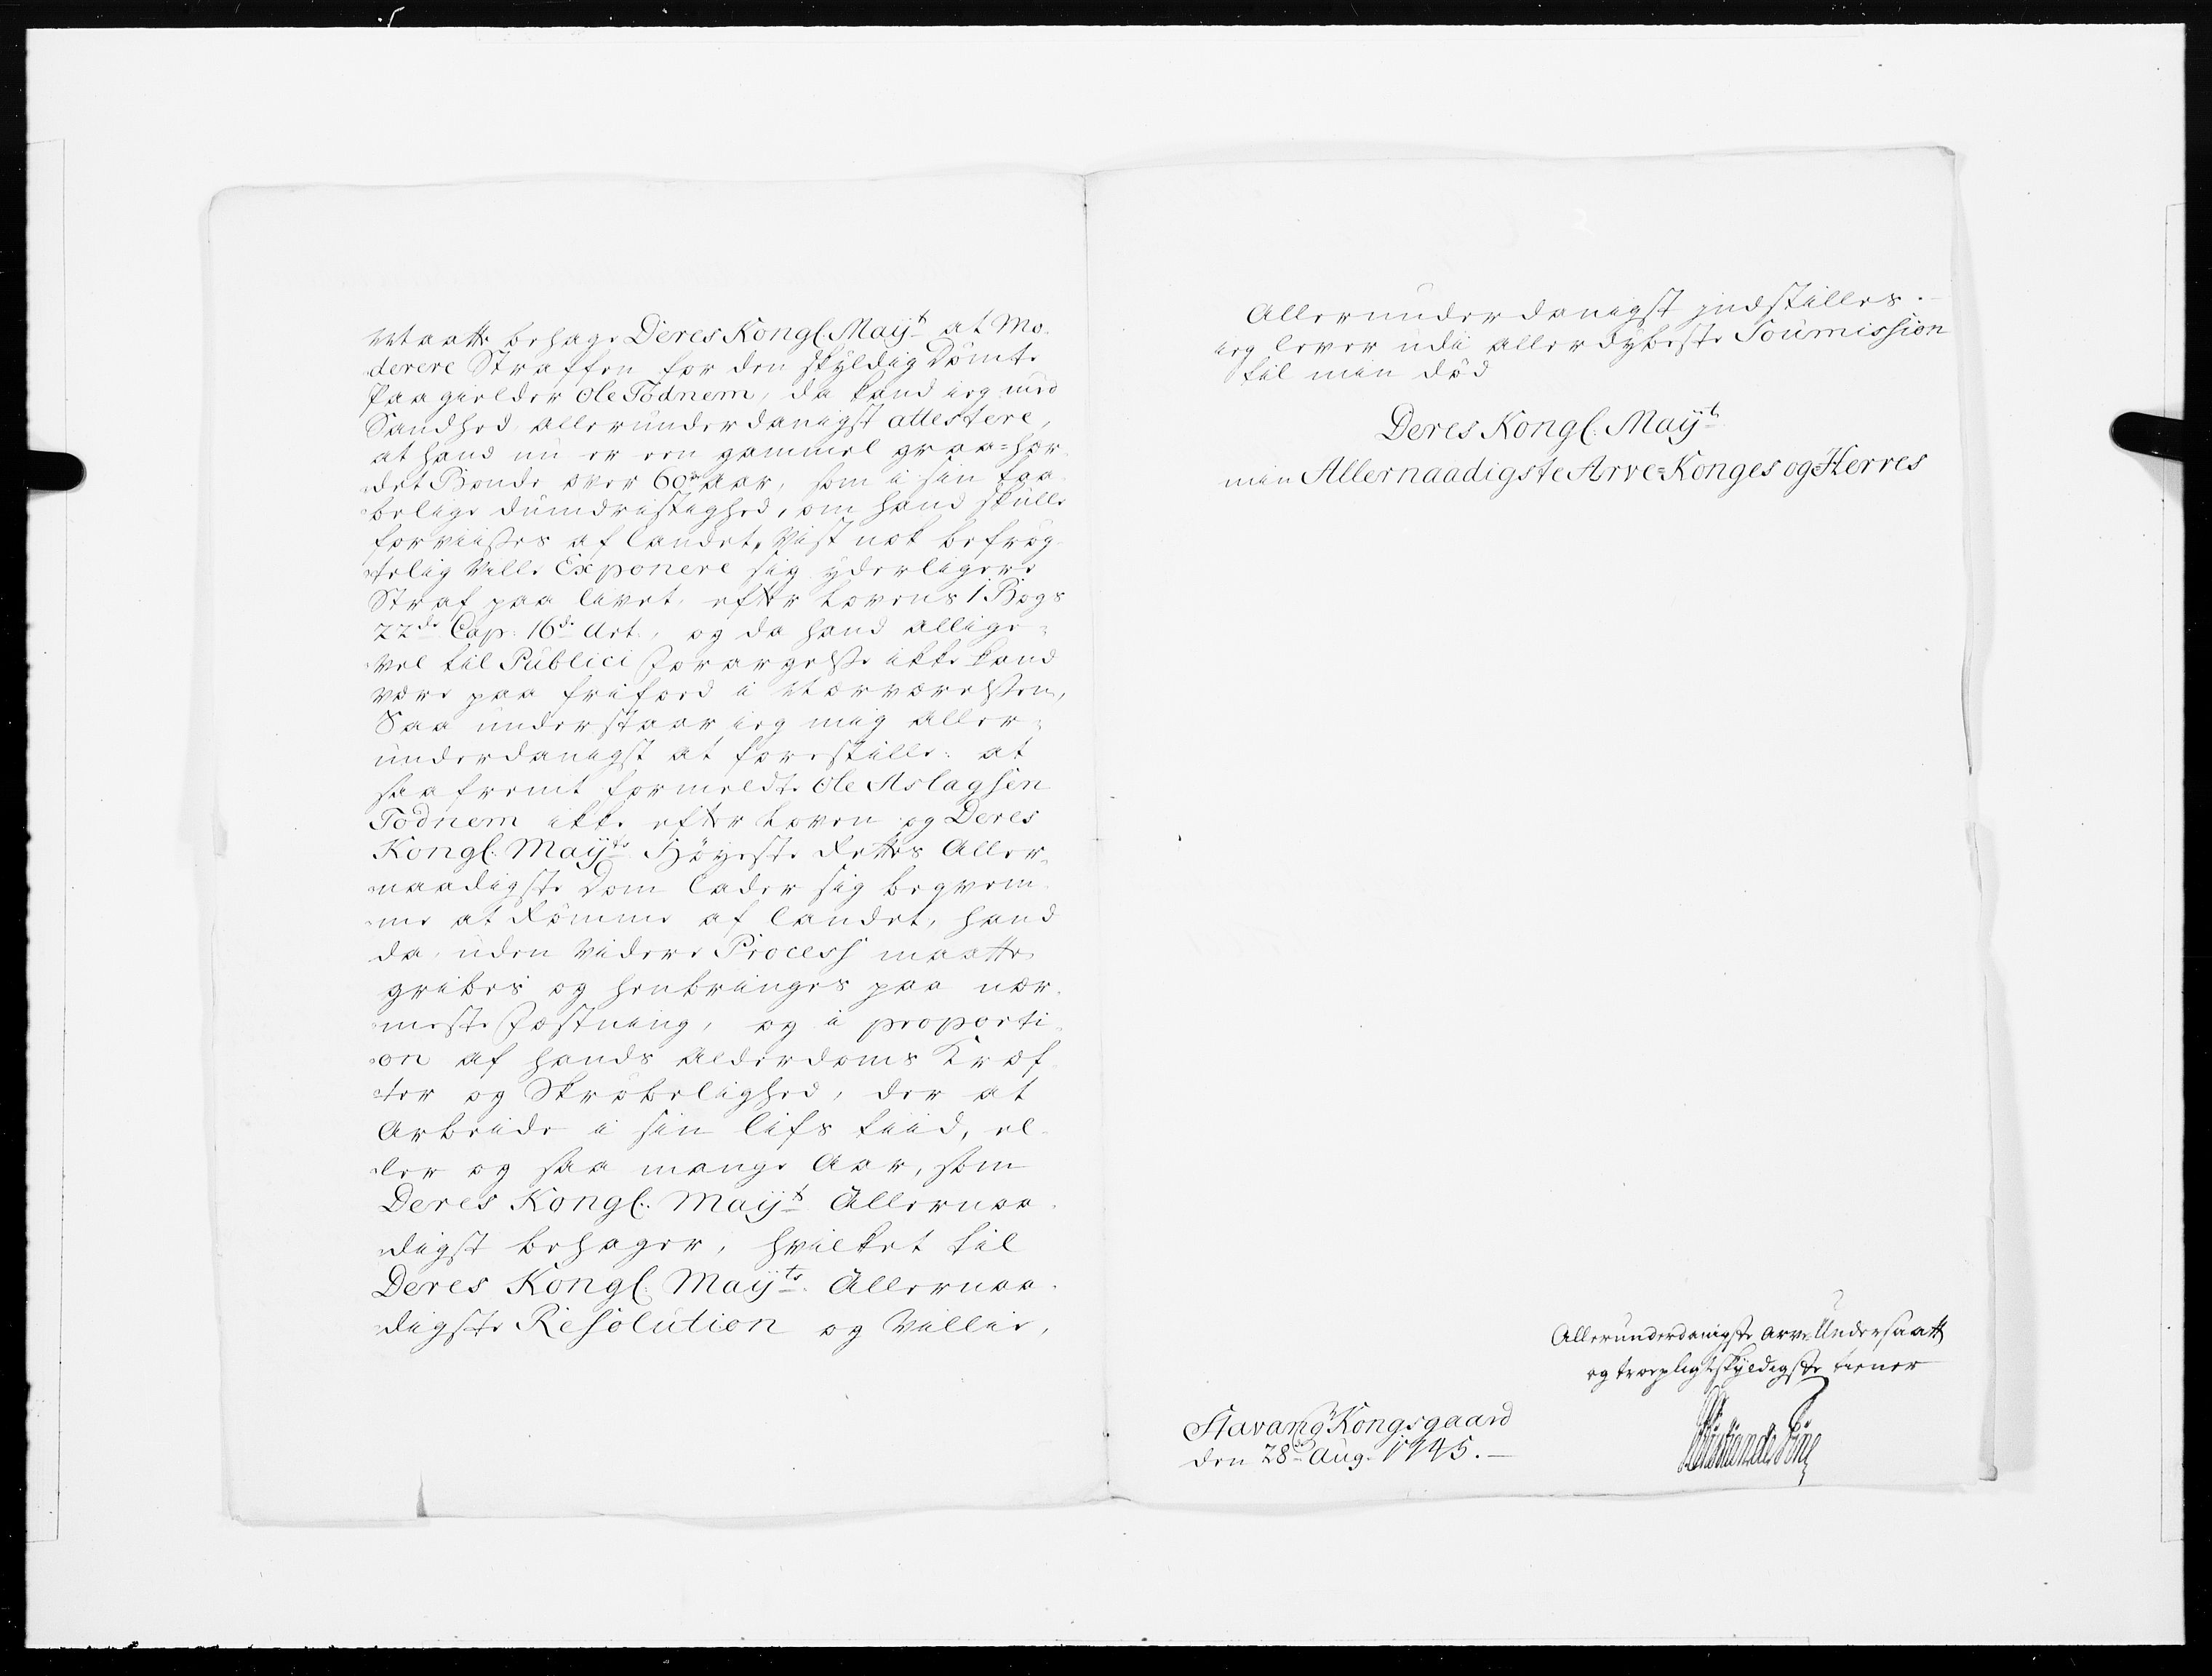 Maatte behage Deres Kongl. Mayt at Mo-
derere Straffen for den skyldig Dömte
Paagielder Ole Todnem, da kand ieg med
Sandhed allerunderdanigst attestere,
at hand nu er een gammel graa=hær-
det Bonde over 60 Aar, som i sin taa-
belige dumdristighed, om hand skulle
forviises af landet, Vist nok befrög-
telig Ville Exponere sig yderligere
Straf paa livet, efter Lovens 1 Bogs
22de Cap: 16de Art., og da hand allige-
vel til Publici Forargelse ikke kand
være paa frifoed i Nærværelsen,
Saa understaar ieg mig aller-
underdanigst at forestille: at
saafremt formeldte Ole Aslagsen
Todnem ikke efter Loven og Deres
Kongl. Mayts Höyeste Rettes Aller-
naadigste Dom lader sig beqvem-
me at Römme af landet, hand
da, uden videre Process maatte
gribes og henbringes paa nær-
meste Fæstning, og i proporti-
on af hands Alderdoms Kræf-
ter og Skröbelighed, der at
Arbeide i sin lifs tiid, el-
ler og saa mange Aar, som
Deres Kongl. Mayt Allernaa-
digst behager, hvilket til
Deres Kongl. Mayts Allernaa-
digste Resolution og Villie,
Allerunderdanigst indstilles.
ieg lever udi allerdybeste Soumission
til min död
Deres Kongl. Mayt
min Allernaadigste Arve=Konges og Herres
Allerunderdanigste Arve Undersaatt
og troepligtskyldigste tiener
Stavang Kongsgaard
den 28de Aug. 1745.